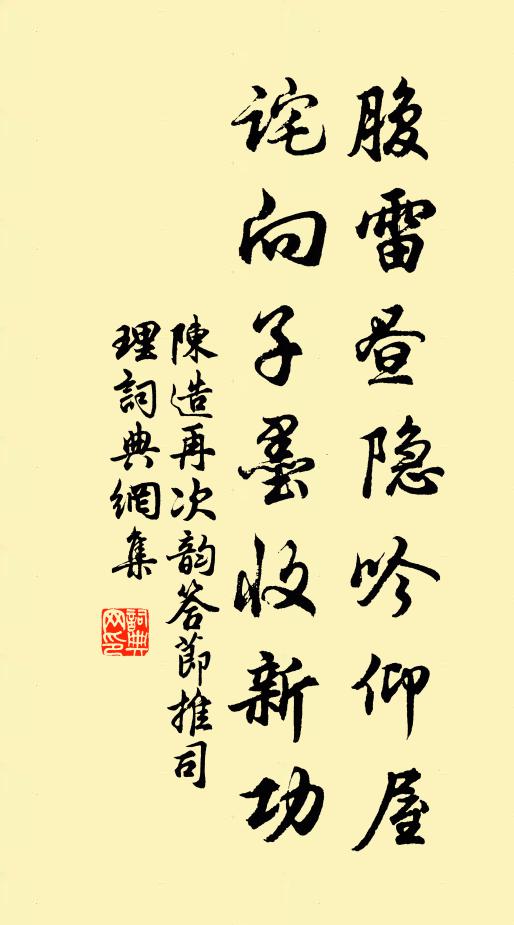 腹雷昼隐吟仰屋
诧向子墨收新功
陳造再次韵答節推司
理詞典網集
詞典网印